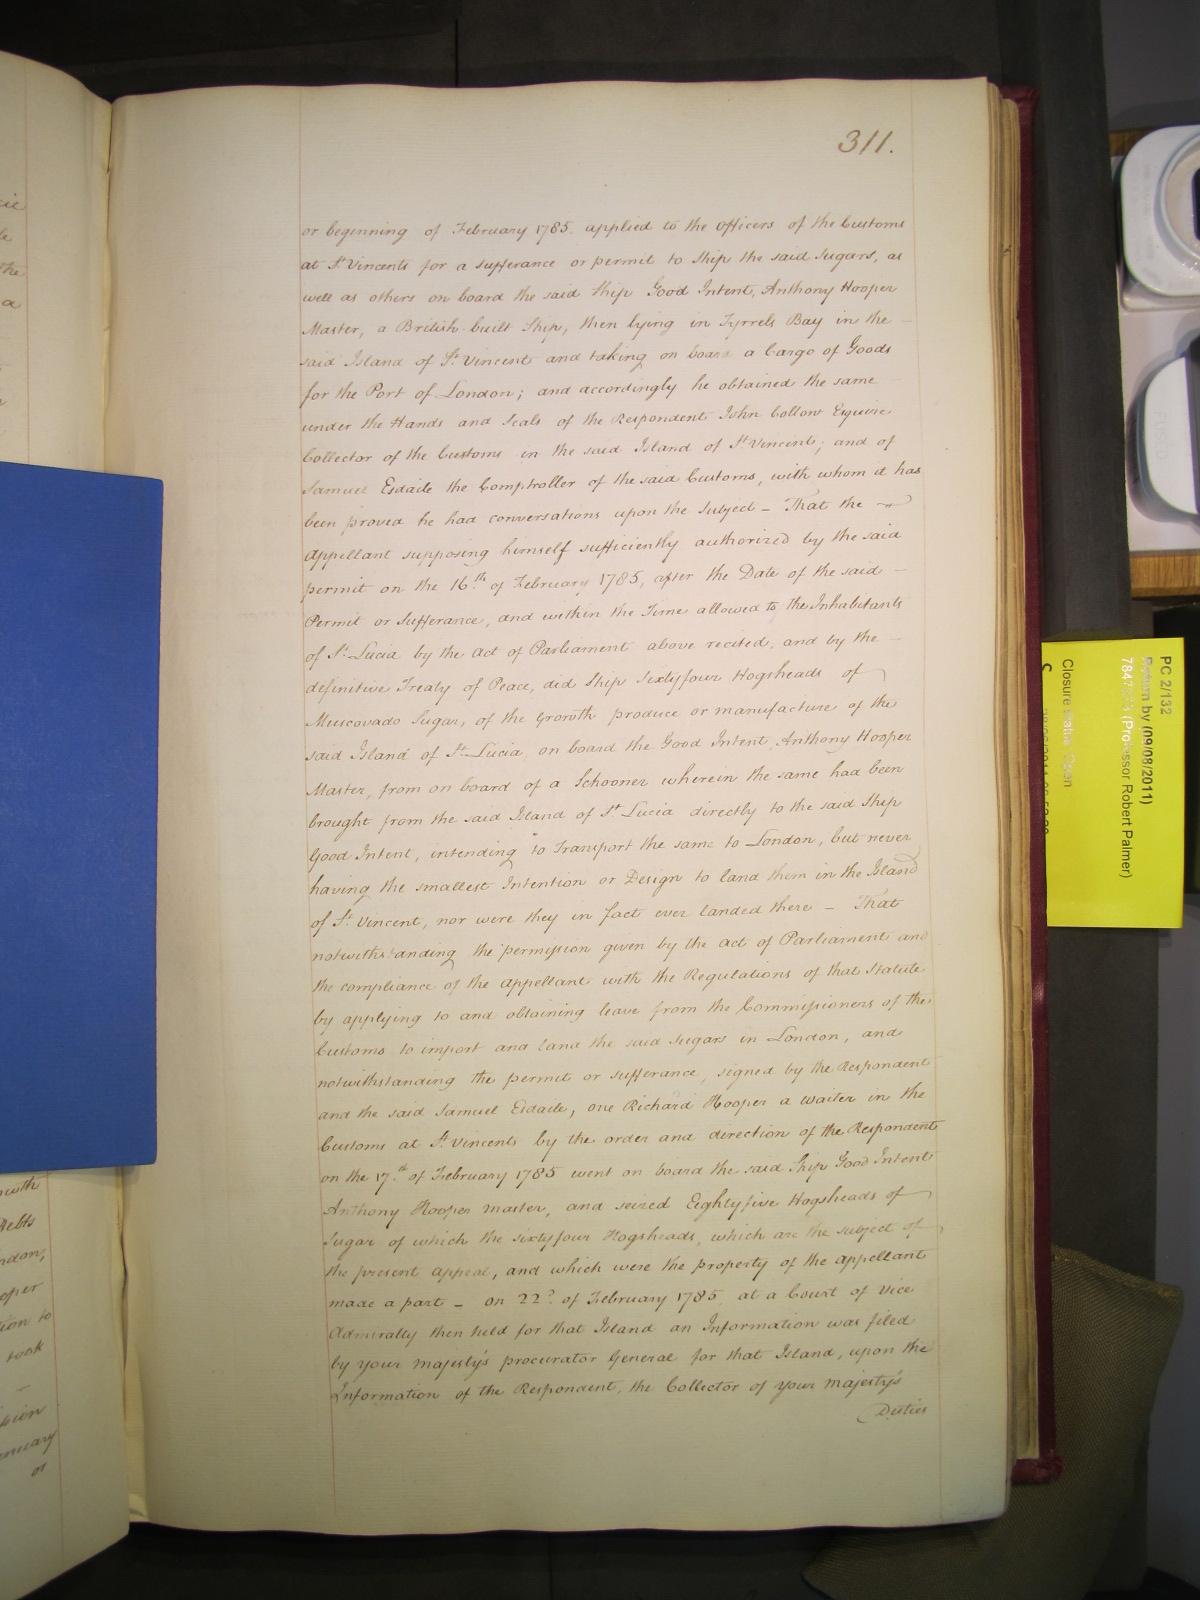 311.
or beginning of February 1785. applied to the officers of the Customs
at St. Vincents for a sufferance or permit to Ship the said Sugars, as
well as others on board the said Ship Good Intent, Anthony Hooper
Master, a British built Ship, then lying in Tyrrels Bay in the
said Island of St. Vincent and taking on board a Cargo of Goods
for the Port of London; and accordingly he obtained the same
under the Hands and Seals of the Respondent John Collow Esquire
Collector of the Customs in the said Island of St. Vincent; and of
Samuel Esdaile the Comptroller of the said Customs, with whom it has
been proved he had conversations upon the Subject – That the
appellant supposing himself sufficiently authorized by the said
permit on the 16.th of February 1785, after the Date of the said –
Permit or Sufferance, and within the Time allowed to the Inhabitants
of St. Lucia by the act of Parliament above recited, and by the –
definitive Treaty of Peace, did Ship Sixtyfour Hogsheads of
Muscovado Sugar, of the Growth produce or manufacture of the
said Island of St. Lucia, on board the Good Intent, Anthony Hooper
Master, from on board of a Schooner wherein the same had been
brought from the said Island of St. Lucia directly to the said Ship
Good Intent, intending to Transport the same to London, but never
having the smallest Intention or Design to land them in the Island
of St. Vincent, nor were they in fact ever landed there – That
notwithstanding the permission given by the act of Parliament and
the compliance of the appellant with the Regulations of that Statute
by applying to and obtaining leave from the Commissioners of the
Customs to import and land the said Sugars in London, and
notwithstanding the permit or sufferance, signed by the Respondent
and the said Samuel Esdaile, one Richard Hooper a waiter in the
Customs at St. Vincents by the order and direction of the Respondent
on the 17.th of February 1785 went on board the said Ship Good Intent
Anthony Hooper master, and seized Eightyfive Hogsheads of
Sugar of which the sixtyfour Hogsheads, which are the subject of
the present appeal, and which were the property of the appellant
made a part – on 22.d of February 1785. at a Court of Vice
Admiralty then held for that Island an Information was filed
by your majesty's procurator General for that Island, upon the
Information of the Respondent, the Collector of your majesty's
Duties
PC 2/132
Return by (09/08/2011)
(Professor Robert Palmer)
Closure status Open
the
a
with
Debts
ndon,
oper
tion to
took
nuary
or